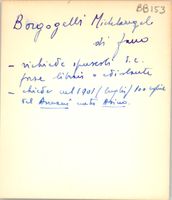 BB153
Borgogelli Michelangelo
di Fano
- richiede opuscoli s.c.
forse libraio o editore
- chiede nel 1901 / luglio / 100 copie
del Annunzi